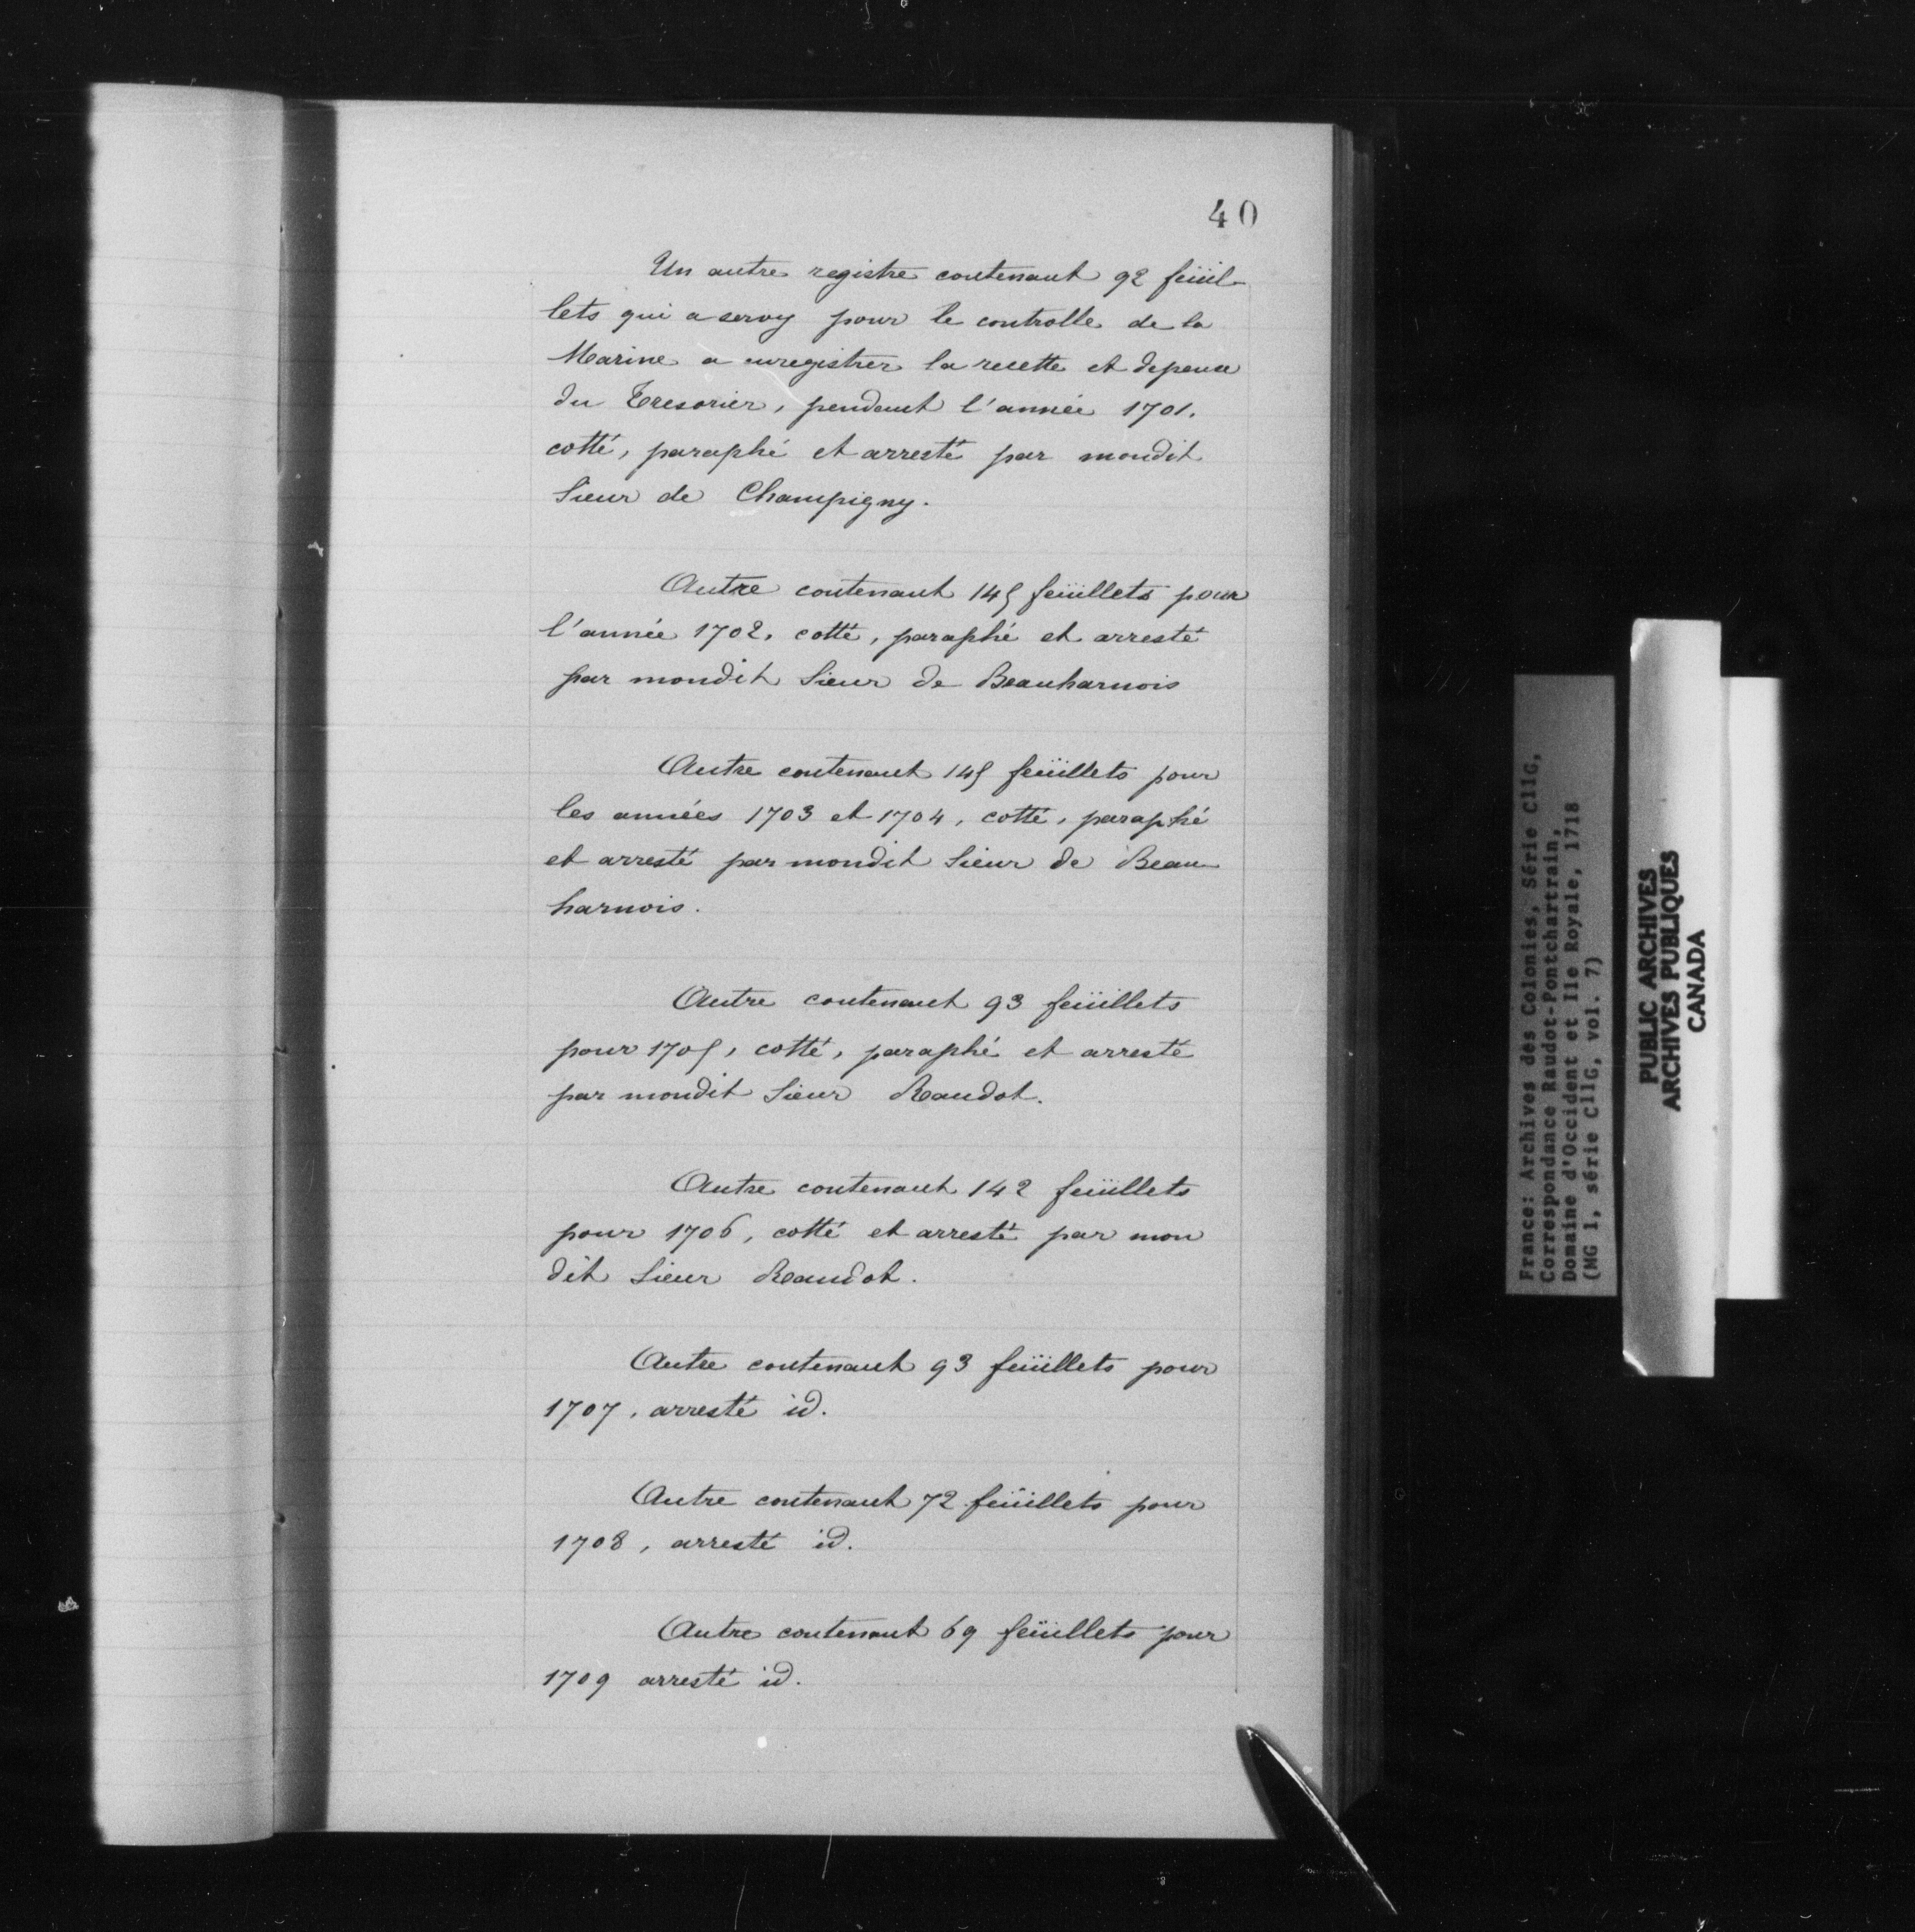 40
Un autre registre contenant 92 feüil-
lets qui a servy pour le controlle de la
Marine a enregistrer la recette et depense
du Tresorier, pendant l'année 1701.
cotté, paraphé et arresté par mondit
Sieur de Champigny.
Autre contenant 145 feüillets pour
l'année 1702. cotté, paraphé et arresté
par mondit Sieur de Beauharnois
Autre contenant 145 feüillets pour
les années 1703 et 1704, cotté, paraphé
et arresté par mondit Sieur de Beau-
harnois.
Autre contenant 93 feüillets
pour 1705, cotté, paraphé et arresté
par mondit Sieur Raudot.
Autre contenant 142 feüillets
pour 1706, cotté et arresté par mon
dit Sieur Raudot.
Autre contenant 93 feüillets pour
1707, arresté id.
Autre contenant 72 feüillets pour
1708, arresté id.
Autre contenant 69 feüillets pour
1709 arresté id.
France: Archives des Colonies, Série C11G,
Correspondance Raudot-Pontchartrain,
Domaine d'Occident et Ile Royale, 1718
(MG 1, série C11G, vol. 7)
PUBLIC ARCHIVES
ARCHIVES PUBLIQUES
CANADA